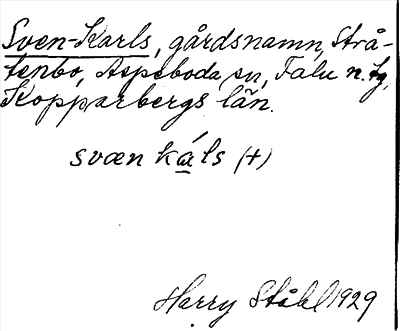 Sven-Karls, gårdsnamn, Strå-
tenbo, Aspeboda sn, Falu n. tg,
Kopparbergs län.
svæn ká̲ls (+)
Harry Ståhl 1929